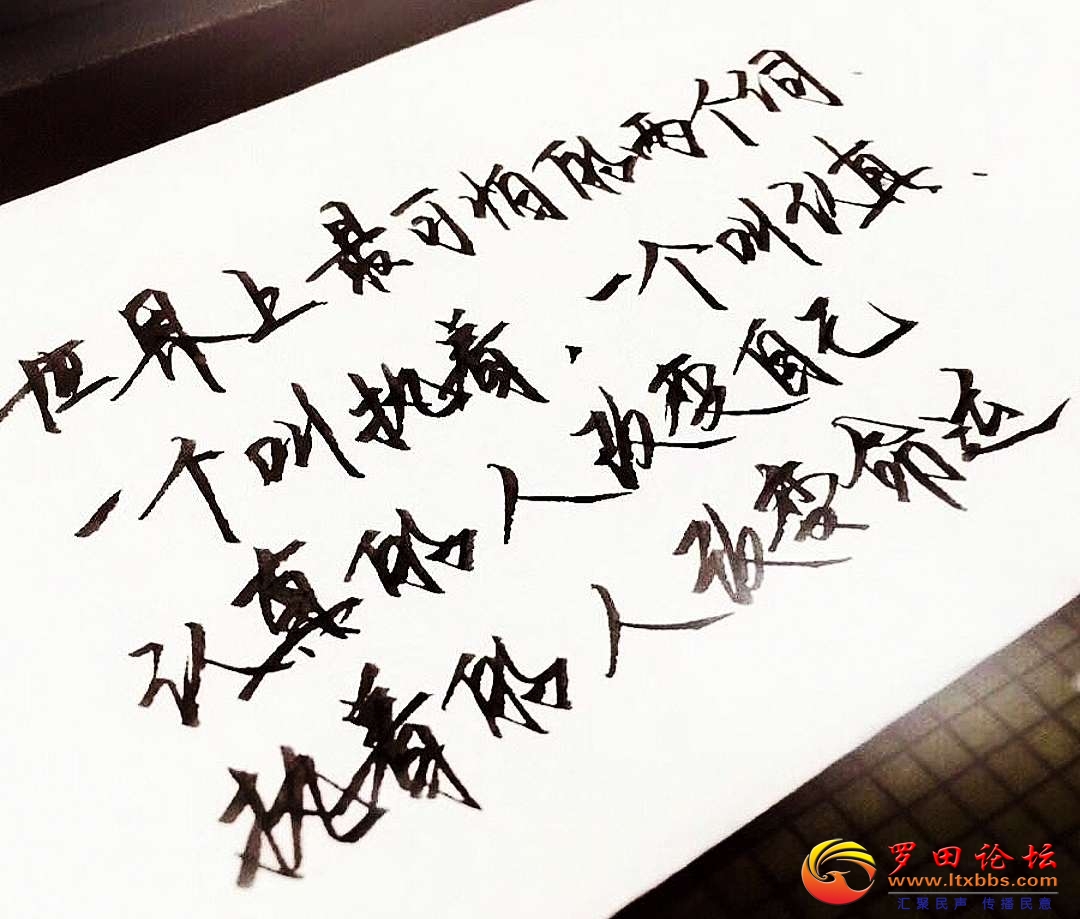 世界上最可怕的两个词
一个叫执着·一个叫认真
认真的人改变自己
执着的人改变命运
罗田论坛
www.ltxbbs.com
汇聚民声 传播民意